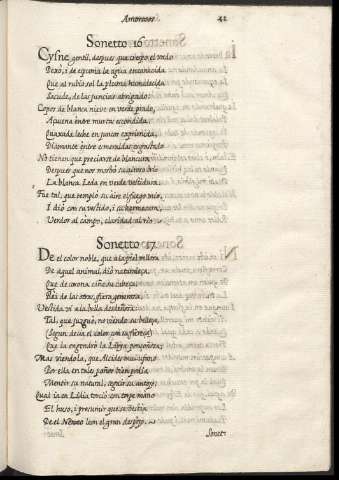 Amorosos.
42
Sonetto 16
Cysne gentil, despues que crespo el vado
Dexò, i de espuma la agua encanecida
Que al rubio sol la pluma humedecida
Sacude, de las juncias abrigado:
Copos de blanca nieve en verde prado,
Açucena entre murtas escondida,
Quaxada leche en juncos exprimida,
Diamante entre esmeraldas engastado
No tienen que preciarse de blancura
Despues que nos mostrò su airoso brio
La blanca Leda en verde vestidura.
Fue tal, que templò su aire el fuego mio,
I diò con su vestido, i su hermosura,
Verdor al campo, claridad al rio
Sonetto 17
De el color noble, que a la piel vellosa
De aquel animal diò naturaleza,
Que de corona ciñe su cabeça,
Rei de las otras, fiera generosa,
Vestida vi a la bella desdeñosa
Tal, que juzguè, no viendo su belleza
(Segun decia el color con su fiereza)
Que la engendrò la Libya ponçoñosa;
Mas viendola, que Alcides mui ufano
Por ella en tales paños bien podia
Mentir su natural, seguir su antojo,
Qual ia en Lidia torciò con torpe mano
El huso, i presumir que se vestia
De el Nemeo leon el gran despojo.
Sonet-